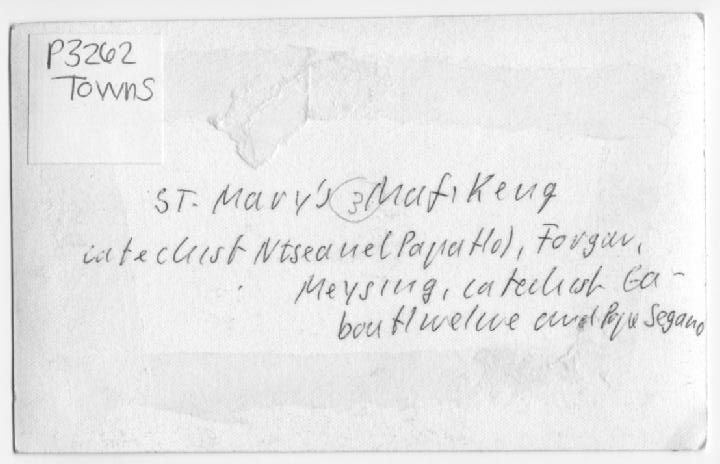 P3262
Towns
ST. Mary's 3 Mafikeng
catechist Ntseane (Papa Tlo), Forgar,
Meysing, catechist Ga-
boutlwelwe and Papa Segano